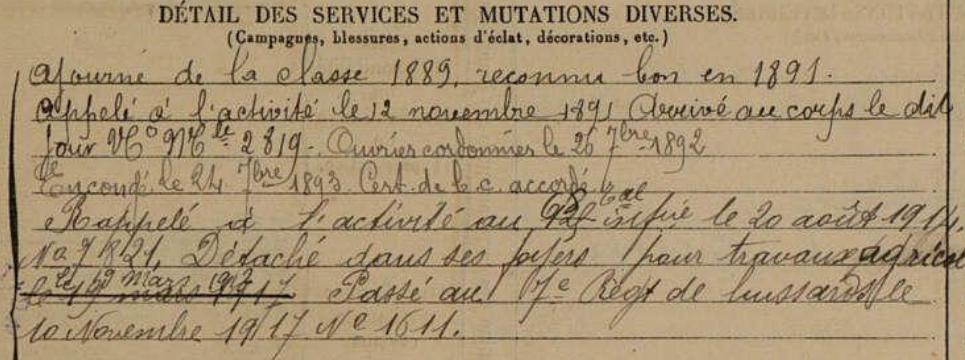 DÉTAIL DES SERVICES ET MUTATIONS DIVERSES.
(Campagnes, blessures, actions d'éclat, décorations, etc.)
Ajourné de la classe 1889, reconnu bon en 1891.
Appelé à l'activité le 12 novembre 1891 Arrivé au corps le dit
jour N° Mle 2819. Ouvrier cordonnier le 26 7bre 1892
En congé le 24 7bre 1893. Cert. de b. c. accordé.
Rappelé à l'activité au infrie le 20 août 1914.
No 7821, Détaché dans ses foyers pour travaux agricol
le mars 1917 Passé au 7e Régt de hussards le
10 Novembre 1917 No 1611.